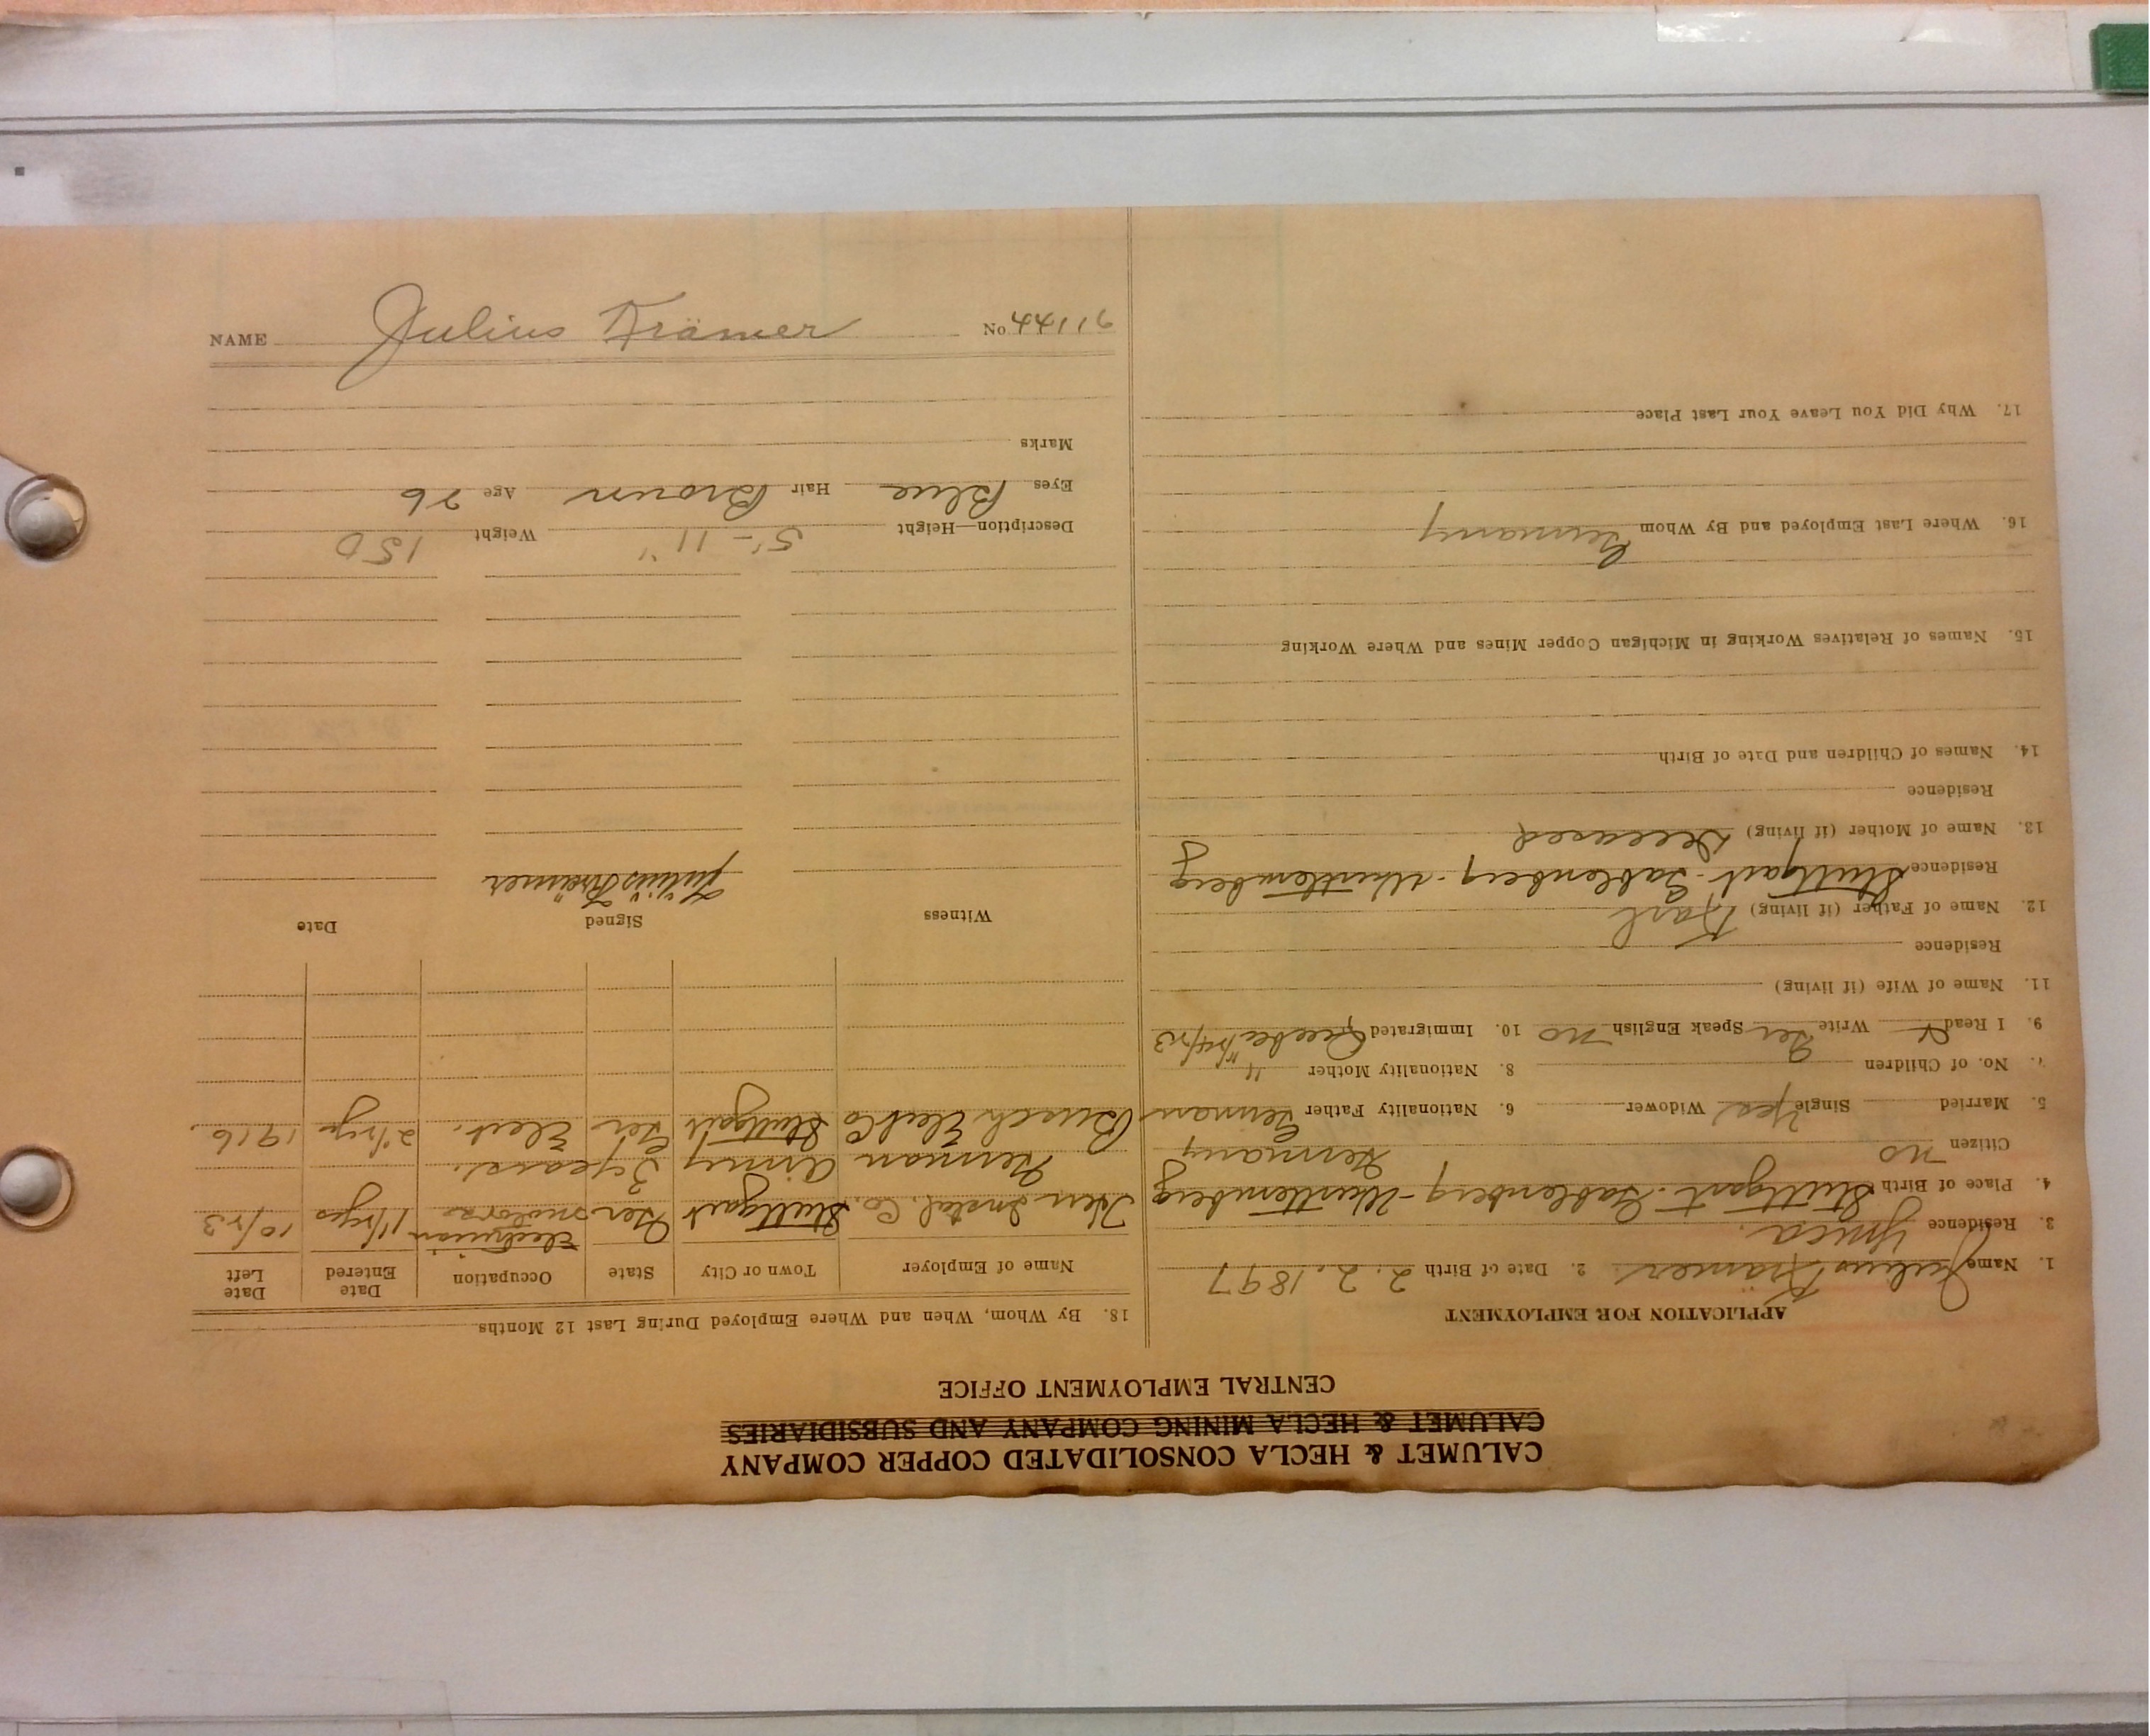 CALUMET & HECLA CONSOLIDATED COPPER COMPANY
CALUMET & HECLA MINING COMPANY AND SUBSIDIARIES
CENTRAL EMPLOYMENT OFFICE
APPLICATION FOR EMPLOYMENT
1. Name Julius Krämer 2. Date of Birth 2.2.1897
3. Residence Ymca.
4. Place of Birth Stuttgart-Gablenberg-Wurttemberg
Germany
Citizen no
5. Married Single Yes Widower 6. Nationality Father German
7. No. of Children 8. Nationality Mother "
9. I Read Write Ger Speak English no 10. Immigrated Quebec
11. Name of Wife (if living)
Residence
12. Name of Father (if living) Karl
Residence Stuttgart-Gablenberg-Wurttemberg
13. Name of Mother (if living) Deceased
Residence
14. Names of Children and Date of Birth
15. Names of Relatives Working in Michigan Copper Mines and Where Working
16. Where Last Employed and By Whom Germany
17. Why Did You Leave Your Last Place
18. By Whom, When and Where Employed During Last 12 Months
Name of Employer Town or City State Occupation Date Entered Date Left
Instal. Co. Stuttgart Ger Electrician 10/23
German Army 3 years.
Elect Co Stuttgart Ger Elect. 1916
Witness Signed Date
Julius Krämer
Description—Height 5'-11" Weight 150
Eyes Blue Hair Brown Age 26
Marks
NAME Julius Krämer No 44116